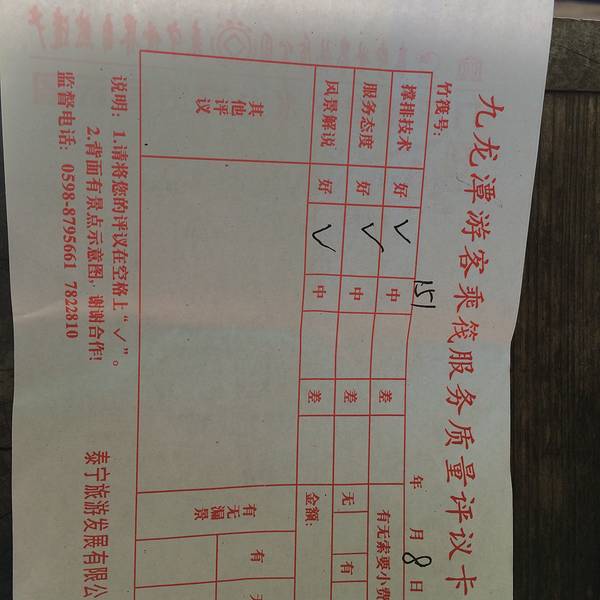 九龙潭游客乘筏服务质量评议卡
竹筏号: 151 年 月 8 日
撑排技术 好 ✓ 中 差 有无索要小费
服务态度 好 ✓ 中 差 无 有
风景解说 好 ✓ 中 差 金额:
其他评议 有无漏景 有
说明: 1.请将您的评议在空格上“✓”。
2.背面有景点示意图,谢谢合作!
监督电话: 0598-8795661 7822810 泰宁旅游发展有限公